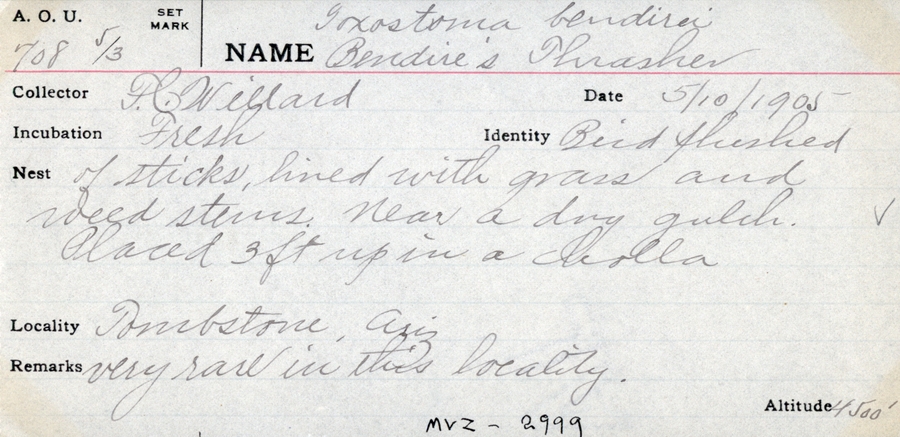 A. O. U. SET MARK Toxostoma bendirei
708 5/3 NAME Bendire's Thrasher
Collector F. C. Willard Date 5/10/1905
Incubation Fresh Identity Bird flushed
Nest of sticks, lined with grass and
weed stems. Near a dry gulch. ✓
Placed 3 ft up in a Cholla
Locality Tombstone, Ariz
Remarks very rare in this locality.
Altitude 4500'
MVZ - 2999